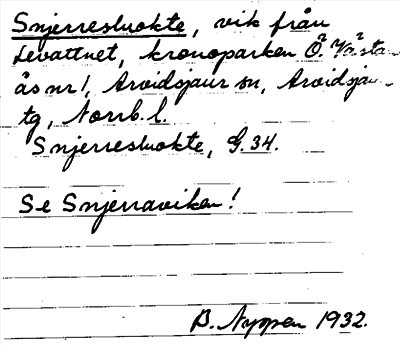 Snjerresluokte, vik från
Levattnet, kronoparken Ö.
ås nr 1, Arvidsjaur sn, Arvidsjau
tg, Norrb. l.
Snjerresluokte, G. 34.
Se Snjerraviken!
B. Nyppen 1932.